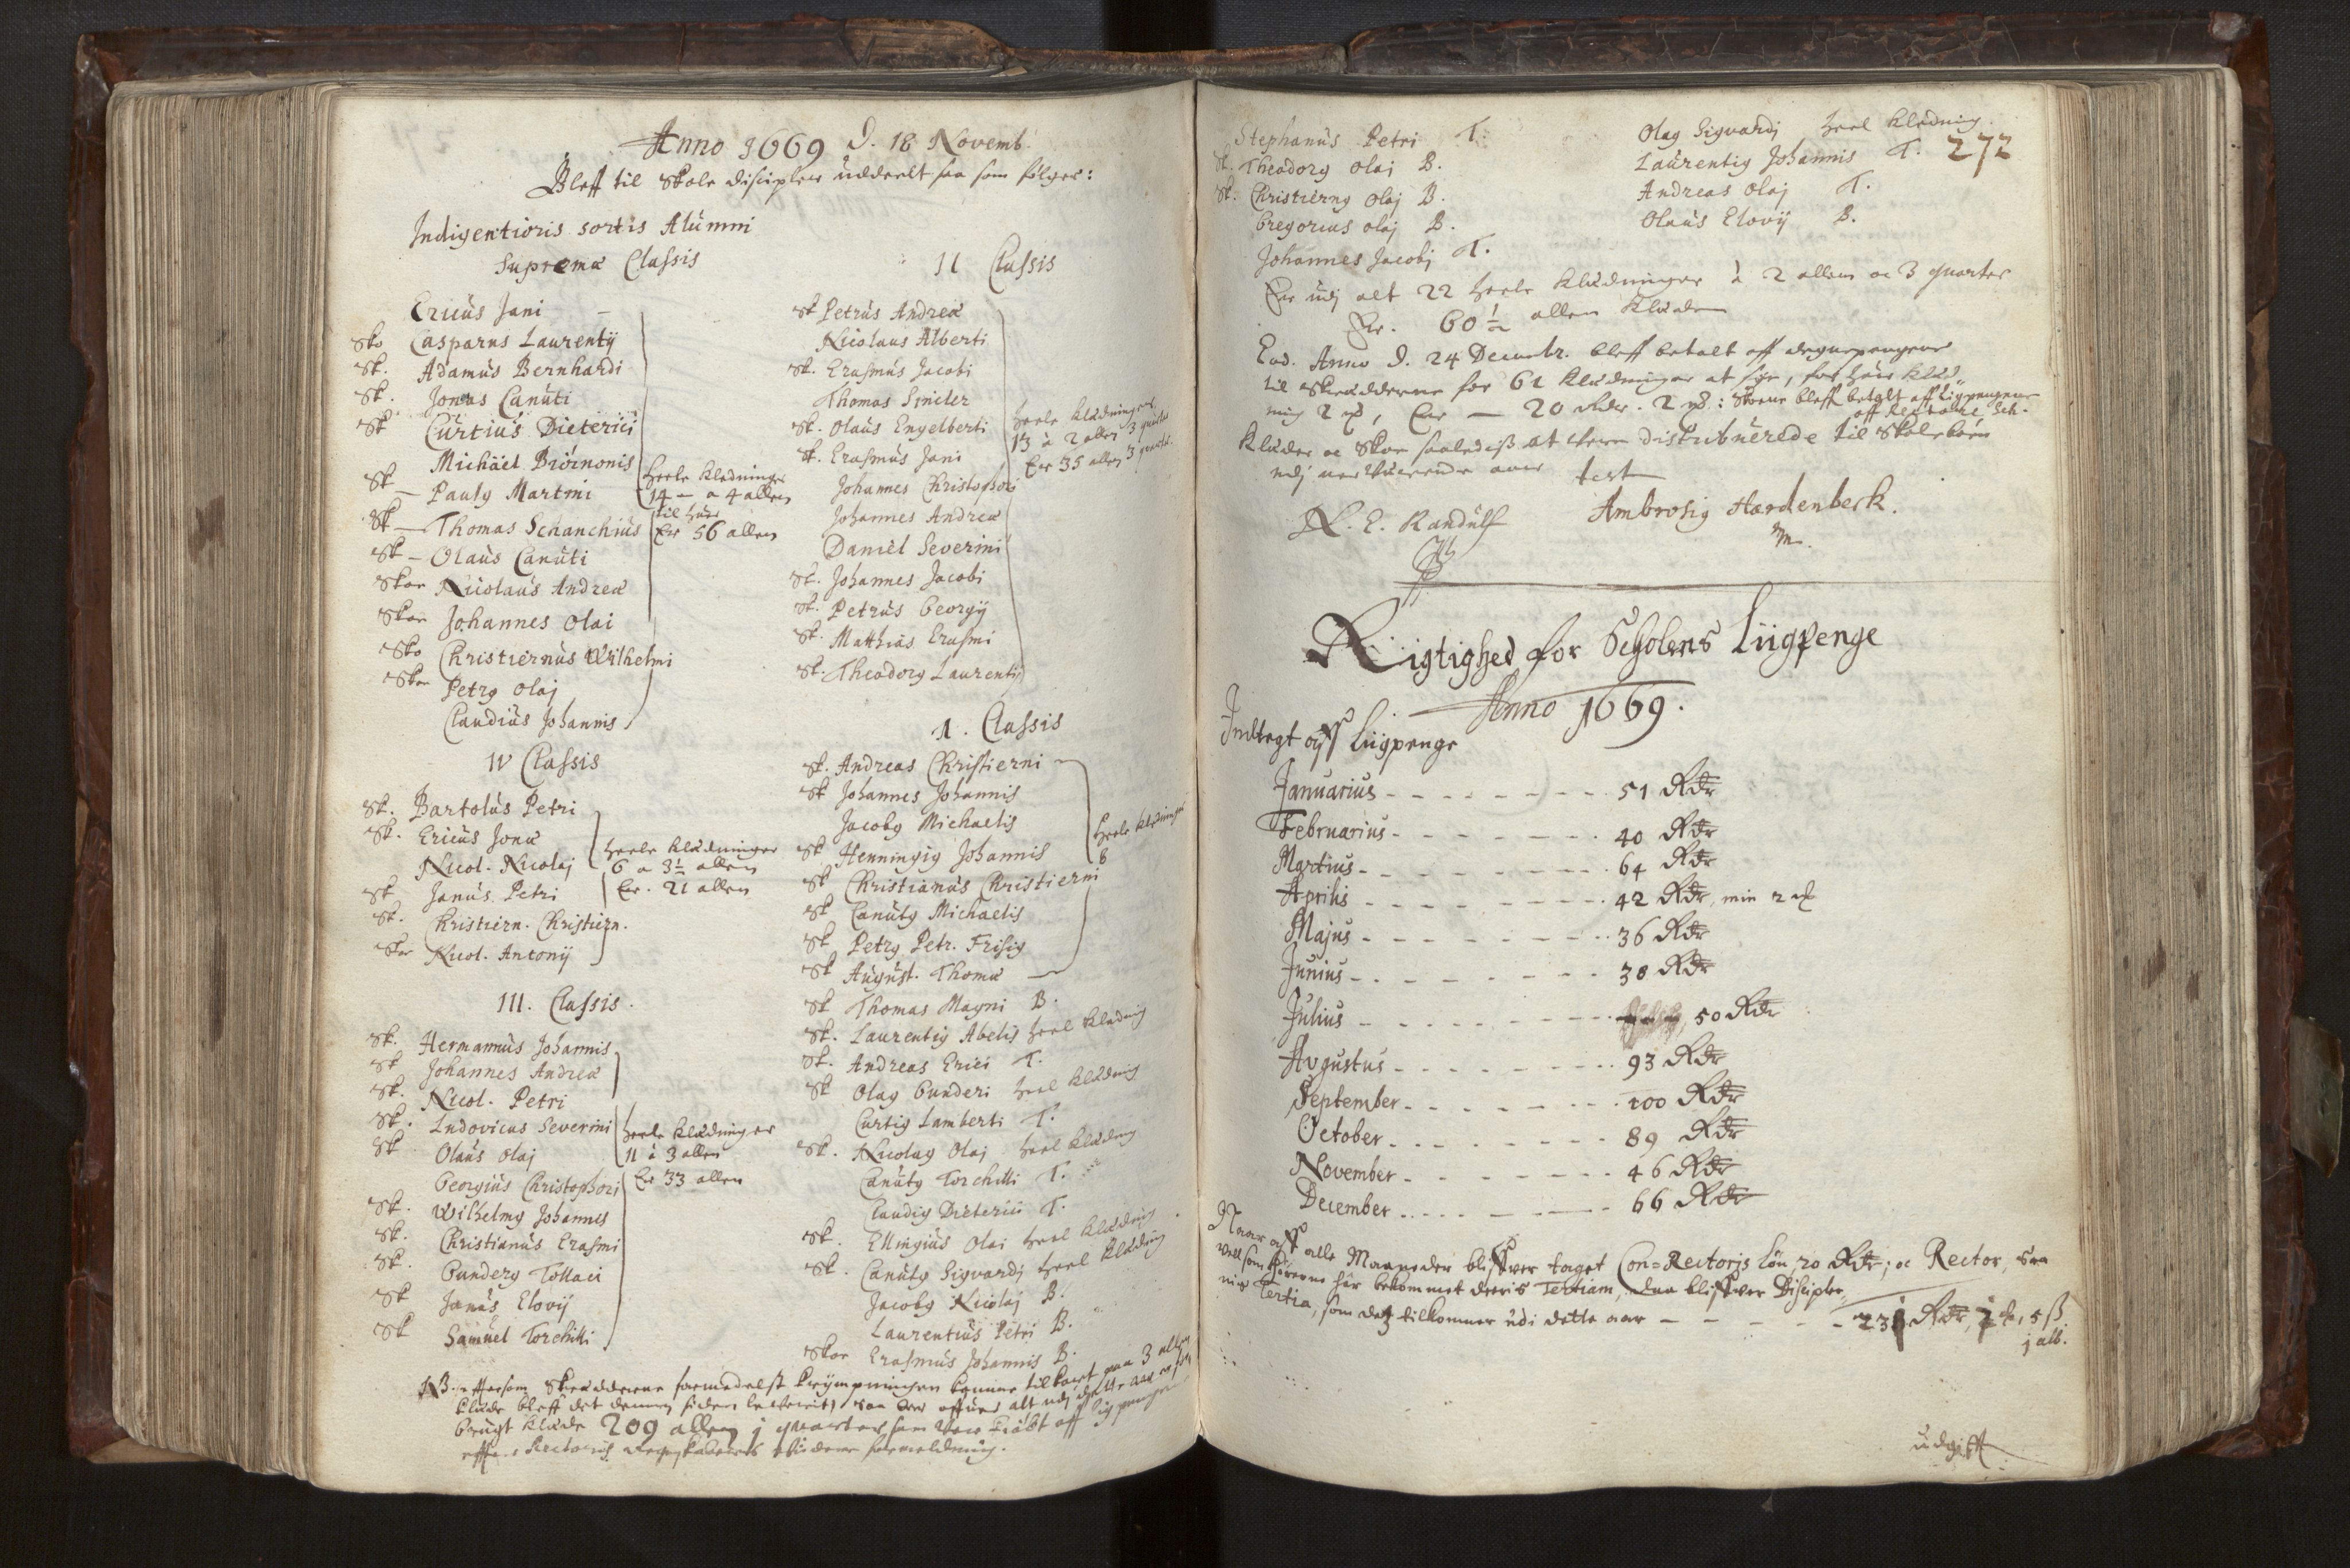 Anno 1669 D. 18 Novemb.
Bleff til Skole disciplene uddeelt saa som følger:
Indigentioris sortis Alumni
Supremæ Classis
Ericus Jani
Sko Casparus Laurentij
Sk. Adamus Bernhardi
Sk. Jonas Canuti
Sk Curtius Dieterici
Michäel Biörnonis
Sk Pauly Martini
Sk Thomas Schanchius
Sk Olaus Canuti
Skoe Nicolaus Andreæ
Skoe Johannes Olai
Sko Christiernus Wilhelmi
Skoe Petry Olaj
Claudius Johannis
heele kledninger
14 a 4 allen
til huer
Er 56 allen
IV Classis
Sk. Bartolus Petri
Sk. Ericus Jonæ
Nicol. Nicolaj
Sk Janus Petri
Sk. Christiern. Christiern.
Skoe Nicol. Antonij
heele klædninger
6 a 3½ allen
Er. 21 allen
III. Classis.
Sk. Hermannus Johannis
Sk Johannes Andreæ
Sk. Nicol. Petri
Sk. Ludovicus Severini
Sk Olaus Olaj
Georgius Christophorj
Sk. Wilhelmy Johannis
Sk. Christianus Erasmi
Sk. Gundery Tollaci
Sk Janus Elovij
Sk Samuel Torchilli
heele klædninger
11 à 3 allen
Er 33 allen
II Classis
Sk Petrus Andreæ
Nicolaus Alberti
Sk. Erasmus Jacobi
Thomas Sincler
Sk. Olaus Engelberti
Sk. Erasmus Jani
Johannes Christophori
Johannes Andreæ
Daniel Severini
Sk. Johannes Jacobi
Sk. Petrus Georgij
Sk. Matthias Erasmi
Sk. Theodory Laurentij
heele kledninger
13 à 2 allen 3 quarter
Er 35 allen 3 quarter.
1. Classis
Sk. Andreas Christierni
Sk Johannes Johannis
Jacoby Michaelis
Sk Henningig Johannis
Sk Christianus Christierni
Sk Canuty Michaelis
Sk Petry Petr. Frisig
Sk August. Thomæ
heele kledninger
8
Sk Thomas Magni B.
Sk. Laurentig Abelis heel kledning
Sk. Andreas Erici T.
Sk Olay Gunderi heel kledning
Curtig Lamberti T.
Sk. Nicolay Olaj heel klædning
Canuty Torchilli T.
Claudig Dieterici T.
Sk. Ellingius Olai heel klædning
Sk. Canuty Sigvardj heel klædning
Jacoby Nicolaj B.
Laurentius Petri B.
Skoe Erasmus Johannis B.
NB. effterson Skrædderne formedelst krympningen kunne tilkort paa 3 allen
klæde bleff det dennem siden leverit, saa er offuer alt udj dette aar
brugt klæde 209 allen j quarter som vaar kiöbt aff liigpengene
effter Rectoris Regnskabers videre formelding.
272
Stephanus Petri T.
Sk. Theodory Olai B.
Sk: Christierny Olaj B.
Gregorius Olaj B.
Johannes Jacobj T.
Olay Sigvardj heel kledning
Laurentig Johannis T.
Andreas Olaj T.
Olaus Elovij B.
Er udj alt 22 heele klædninger à 2 allen oc 3 quarter
Er. 60½ allen klæde
Eod. Anno D. 24 Decembr. bleff betalt aff degnepengene
til Skrædderne for 61 klædninger at sye, for huer klæd-
ning 2 , Er — 20 Rdr. 2 : Skoene bleff betalt aff liigpengene
aff Rectore Sch.
klæder oc Skoe saaledis at være distribuerede til Skolebörn
udj nerværende aar test
N. E. Randulf
Ambrosig Hardenberk.
m.
Rigtighed for Scholens Liigpenge
Anno 1669.
Indtegt aff Liigpenge
Januarius - - - 51 Rdr
Februarius - - - 40 Rdr
Martius - - - 64 Rdr
Aprilis - - - 42 Rdr min 2
Majus - - - 36 Rdr
Junius - - - 38 Rdr
Julius - - - 50 Rdr
Augustus - - - 93 Rdr
September - - - 100 Rdr
October - - - 89 Rdr
November - - - 46 Rdr
December - - - 66 Rdr
Naar aff alle Maaneder bliffver taget Con-Rectoris Løn, 20 Rdr; oc Rector, saa
vel som Hörerne har bekommet deris Tertiam, daa bliffver Disciple-
nis Tertia, som det tilkommer udi dette aar - - - 231 Rdr, , 5 ß
j alb.
udgifft